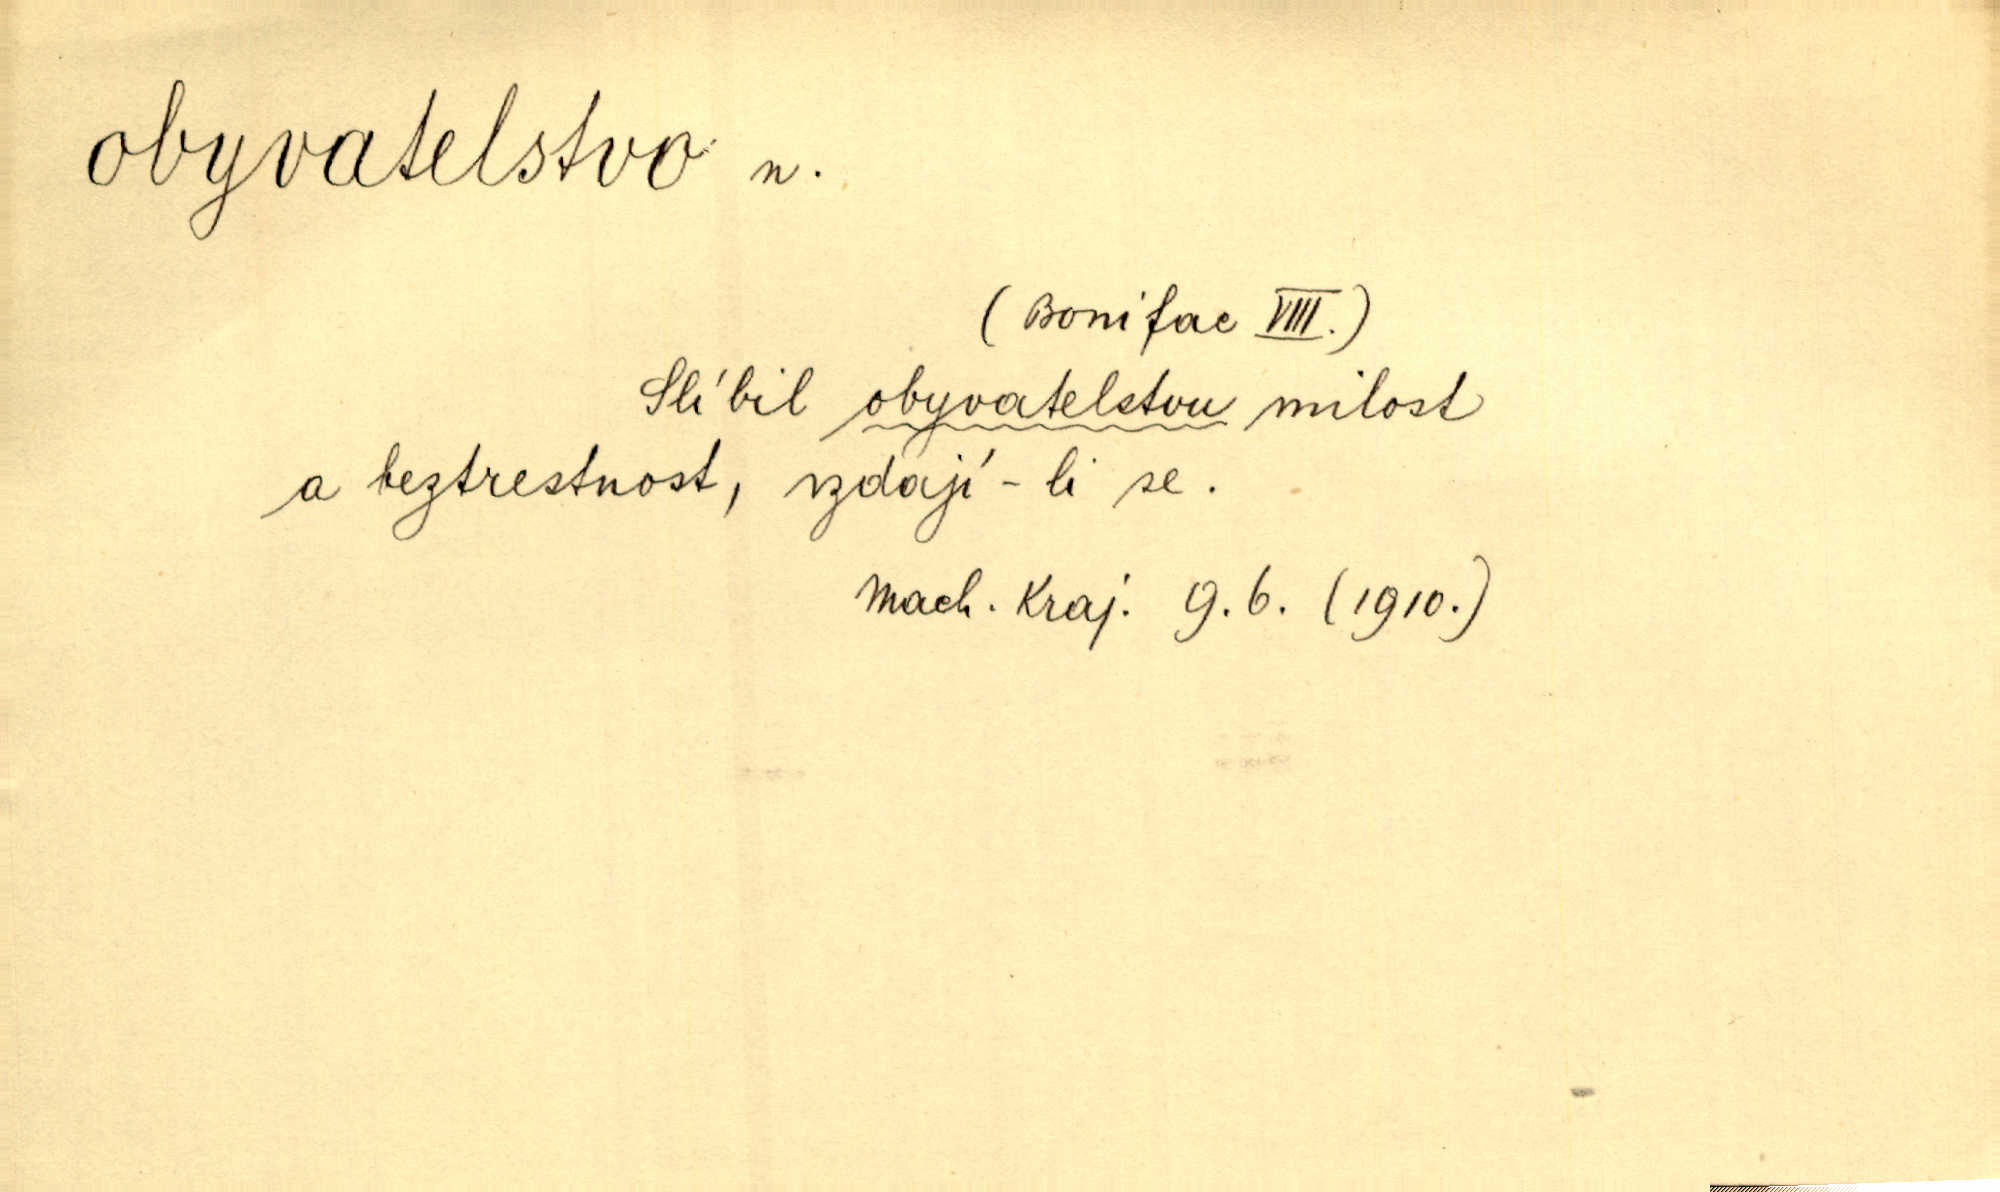 obyvatelstvo n.
(Bonifac VIII.)
Slíbil obyvatelstvu milost
a beztrestnost, vzdají-li se.
Mach. Kraj. 9. 6. (1910.)